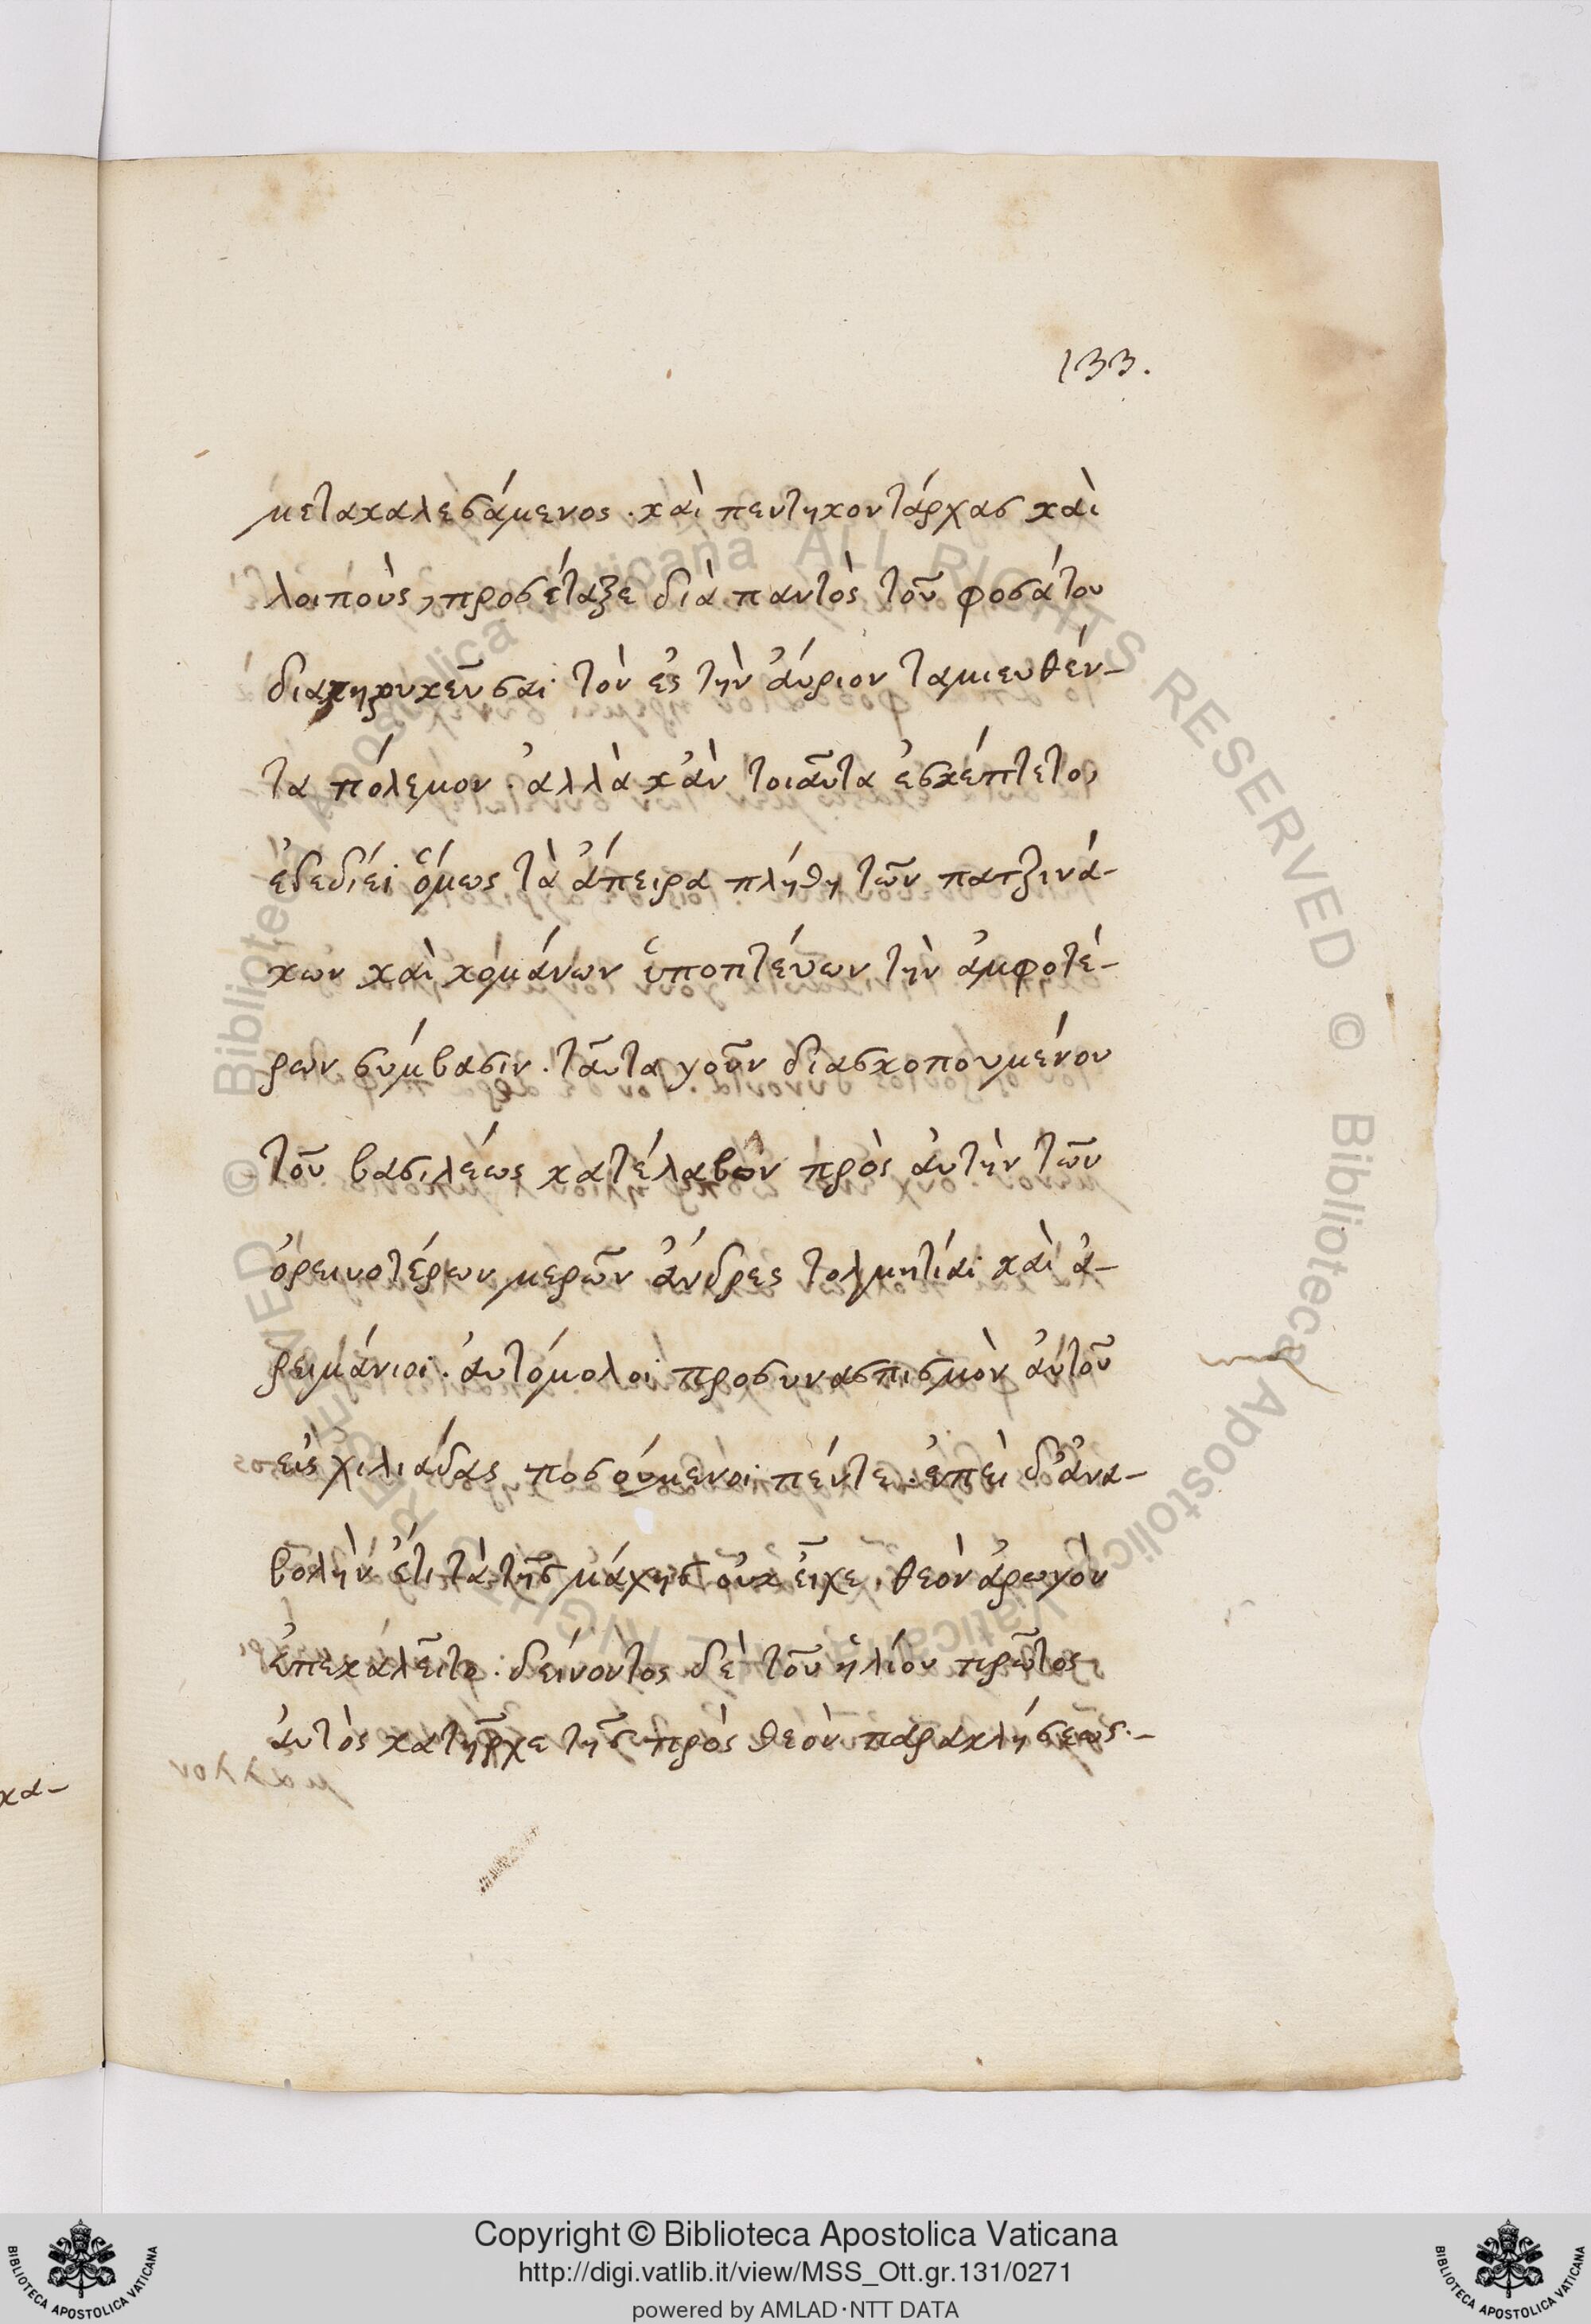 133.
μετακαλεσάμενος. καὶ πεντηκοντάρχας καὶ
λοιποὺς, προσέταξε διὰ παντὸς τοῦ φοσάτου
διακηρυκεῦσαι τὸν ἐς τὴν ἀύριον ταμιευθέν-
τα πόλεμον. ἀλλὰ κἀν τοιαῦτα ἐσκέπτετο,
ἐδεδίει ὅμως τὰ ἄπειρα πλήθη τῶν πατζινά-
κων καὶ κομάνων ὑποπτεύων τὴν ἀμφοτέ-
ρων σύμβασιν. ταῦτα γοῦν διασκοπουμένου
τοῦ βασιλέως κατέλαβον πρὸς ἀυτὴν τῶν
ὀρεινοτέρων μερῶν ἄνδρες τολμητίαι καὶ ἀ-
ρειμάνιοι. ἀυτόμολοι προσυνασπισμὸν ἀυτοῦ
εἰς χιλιάδας ποσούμενοι πέντε. ἐπεὶ δ' ἀνα-
βολὴν ἔτι τὰ τῆς μάχης οὐκ εἶχε, θεὸν ἀρωγὸν
ἐπεκαλεῖτο. δείνοντος δὲ τοῦ ἡλίου πρῶτος
ἀυτὸς κατῆρχε τῆς πρὸς θεὸν παρακλήσεως.-
κα-
Copyright © Biblioteca Apostolica Vaticana
http://digi.vatlib.it/view/MSS_Ott.gr.131/0271
powered by AMLAD·NTT DATA
BIBLIOTECA APOSTOLICA VATICANA
BIBLIOTECA APOSTOLICA VATICANA
© Biblioteca Apostolica Vaticana ALL RIGHTS RESERVED © Biblioteca Apostolica Vaticana ALL RIGHTS RESERVED